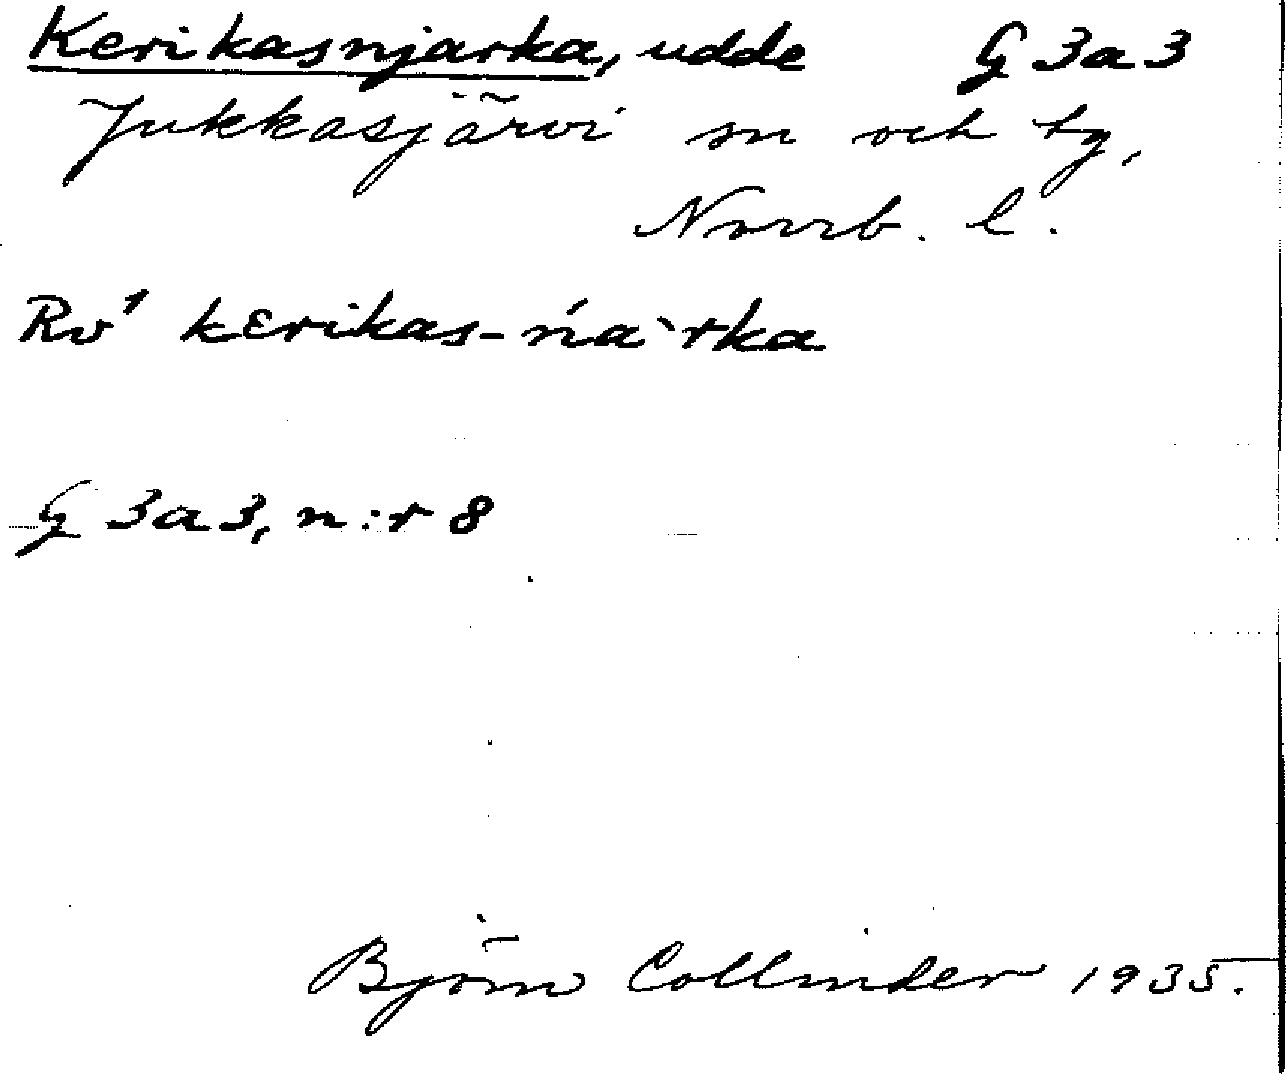 Kerikasnjarka, udde G 3a3
Jukkasjärvi sn och tg,
Norrb. l.
Rv¹ kɛrikas-ńàrka
G 3a3, n:r 8
Björn Collinder 1935.